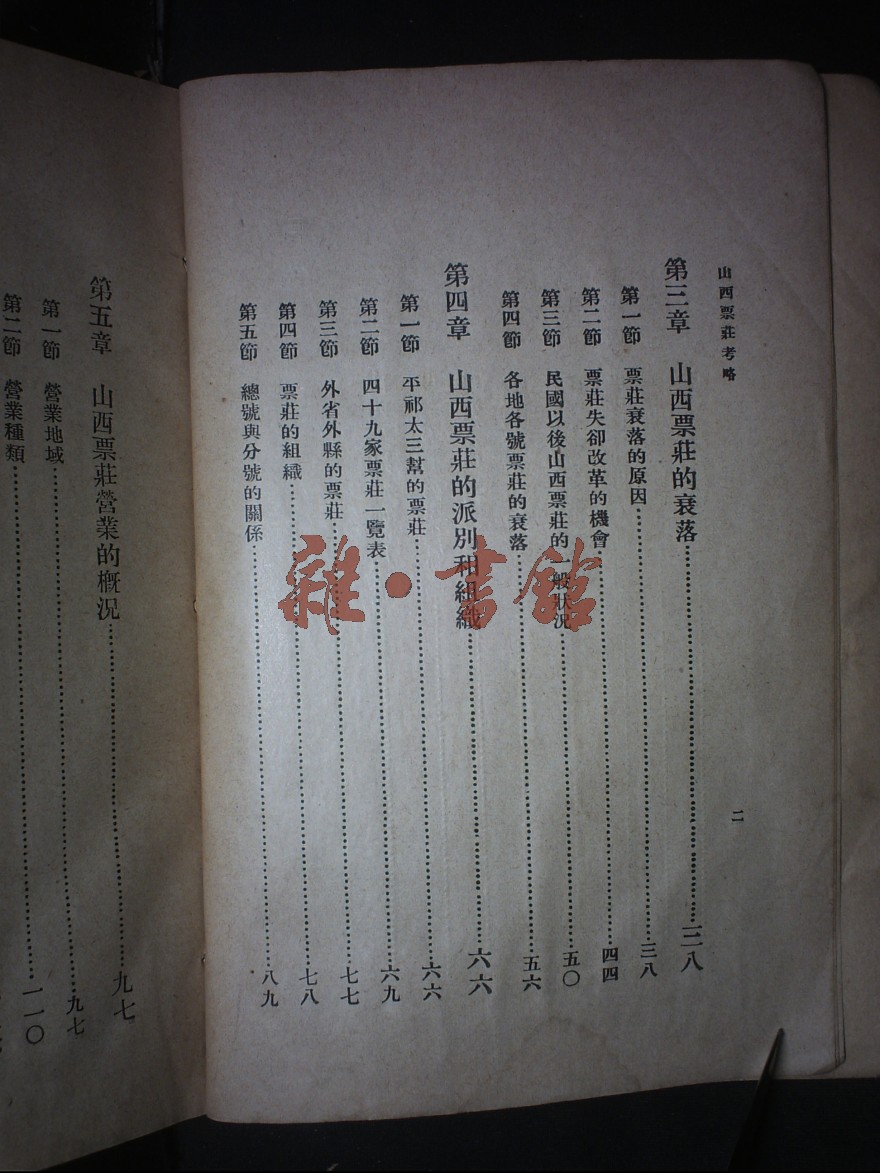 山西票莊考略
二
第三章 山西票莊的衰落……三八
第一節 票莊衰落的原因……三八
第二節 票莊失卻改革的機會……四四
第三節 民國以後山西票莊的一般狀況……五〇
第四節 各地各號票莊的衰落……五六
第四章 山西票莊的派別和組織……六六
第一節 平祁太三幫的票莊……六六
第二節 四十九家票莊一覽表……六九
第三節 外省外縣的票莊……七七
第四節 票莊的組織……七八
第五節 總號與分號的關係……八九
第五章 山西票莊營業的概況……九七
第一節 營業地域……九七
第二節 營業種類……一一〇
雜·書館